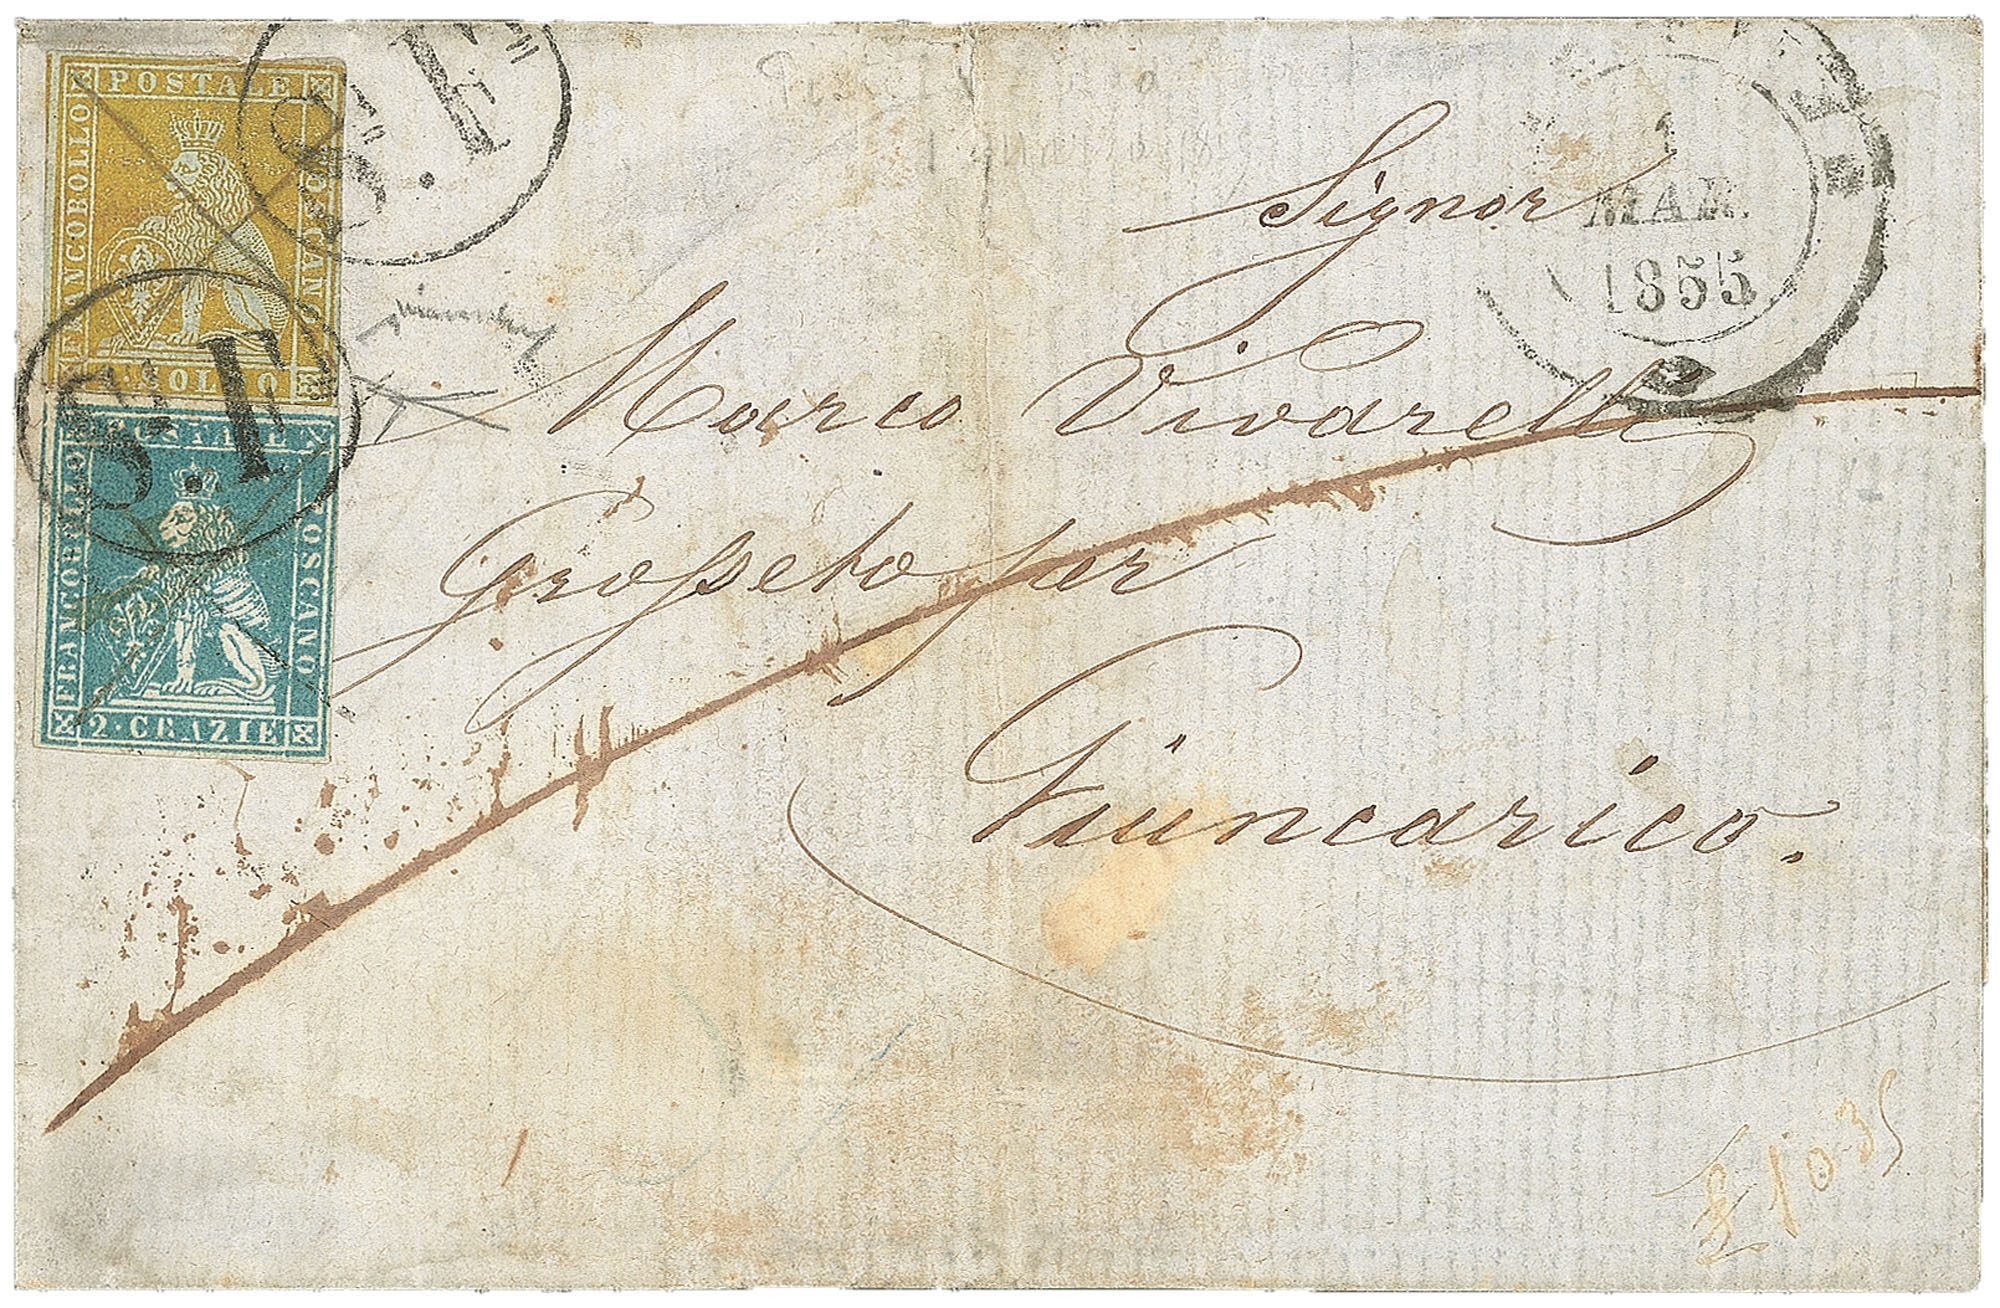 FRANCOBOLLO POSTALE TOSCANO
1 · SOLDO
FRANCOBOLLO POSTALE TOSCANO
2 · CRAZIE
1
MAR.
1855
Signor
Marco Vivarelli
Grosseto per
Giuncarico.